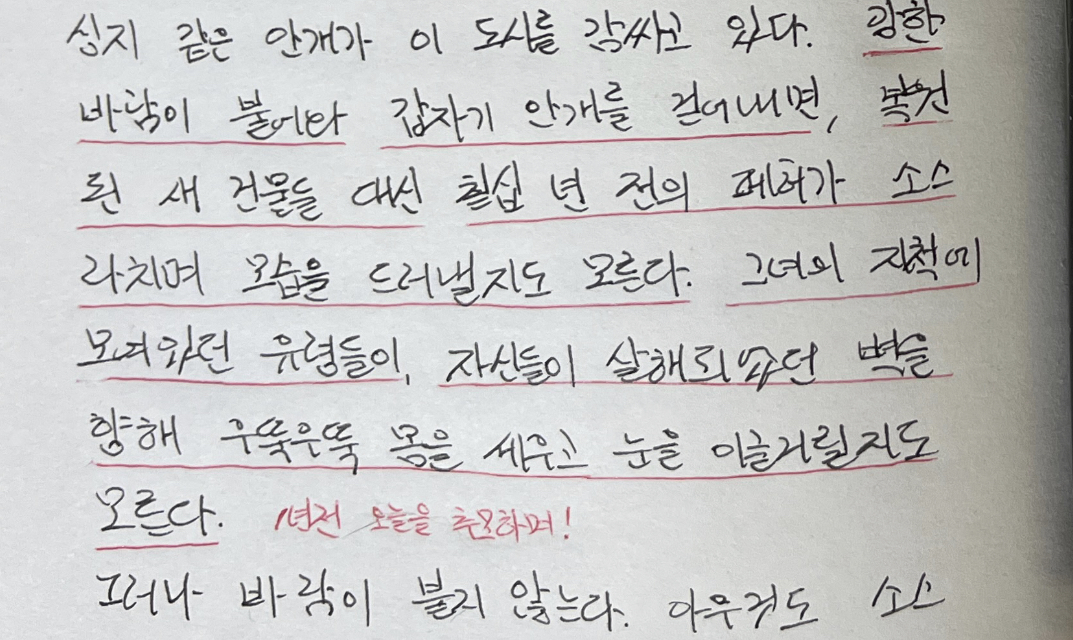 싱지 같은 안개가 이 도시를 감싸고 있다. 강한
바람이 불어와 갑자기 안개를 걷어내면, 복원
된 새 건물들 대신 칠십 년 전의 폐허가 소스
라치며 모습을 드러낼지도 모른다. 그녀의 지척에
모여있던 유령들이, 자신들이 살해되었던 벽을
향해 우뚝우뚝 몸을 세우고 눈을 이글거릴지도
모른다. 1년전 오늘을 추모하며!
그러나 바람이 불지 않는다. 아무것도 소스